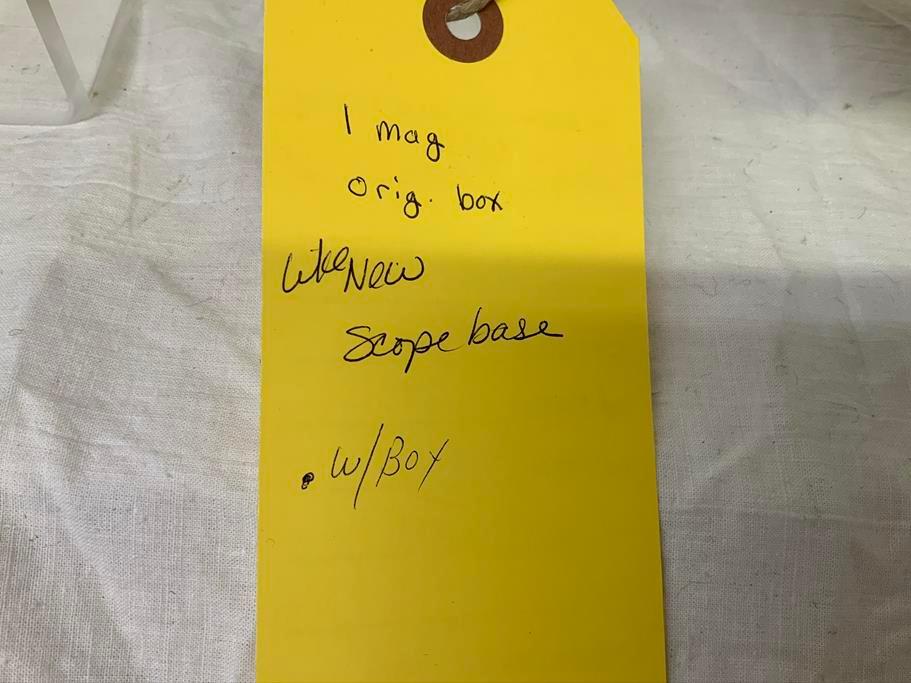 1 mag
orig. box
Like New
Scope base
. W/Box